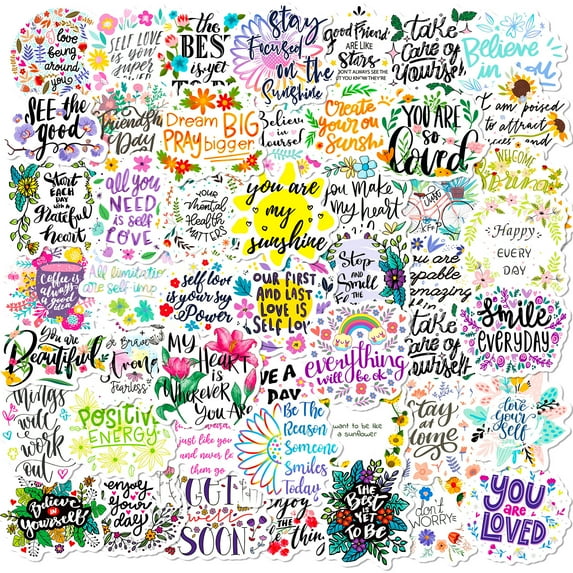 I love
being
around
you
SELF LOVE
IS YOU
THE
BEST
is yet
Stay
Focused
on the
Sunshine
good
Friend
ARE LIKE
Stars
DON'T ALWAYS SEE THE
YOU KNOW THEY'RE
take
care of
yourself
Believe
in you
SEE THE
good
Friendship
DAY
Dream BIG
PRAY bigger
Believe
in
yourself
Create
your own
Sunshi
YOU ARE
so
Loved
I am poised
to attract
WELCOME
Start
EACH
DAY
WITH A
Grateful
heart
all you
NEED
is self
LOVE
YOUR
Mental
Health
MATTERS
you are
my
sunshine
you make
my heart
Happy
EVERY
DAY
Coffee is
always
a good
idea
All limitations
are self-imp
self love
is your su
Power
OUR FIRST
AND LAST
LOVE IS
SELF LOVE
Stop
and
Smell
THE
you are
capable
amazing
Smile
EVERYDAY
You are
Beautiful
Be Brave
Strong
Fearless
MY
Heart
IS
Wherever
You Are
everything
will be ok
take
care of
yourself
VE A
DAY
things
will
work
out
POSITIVE
ENERGY
just like you
and never le
them go
Be The
Reason
Someone
Smiles
Today
want to be like
a sunflower
Stay
at
home
love
your
self
Believe
IN
yourself
enjoy
your
day
GET
well
SOON
Enjoy
the
little
thing
THE
Best
IS
YET
TO BE
don't
WORRY
YOU
are
LOVED